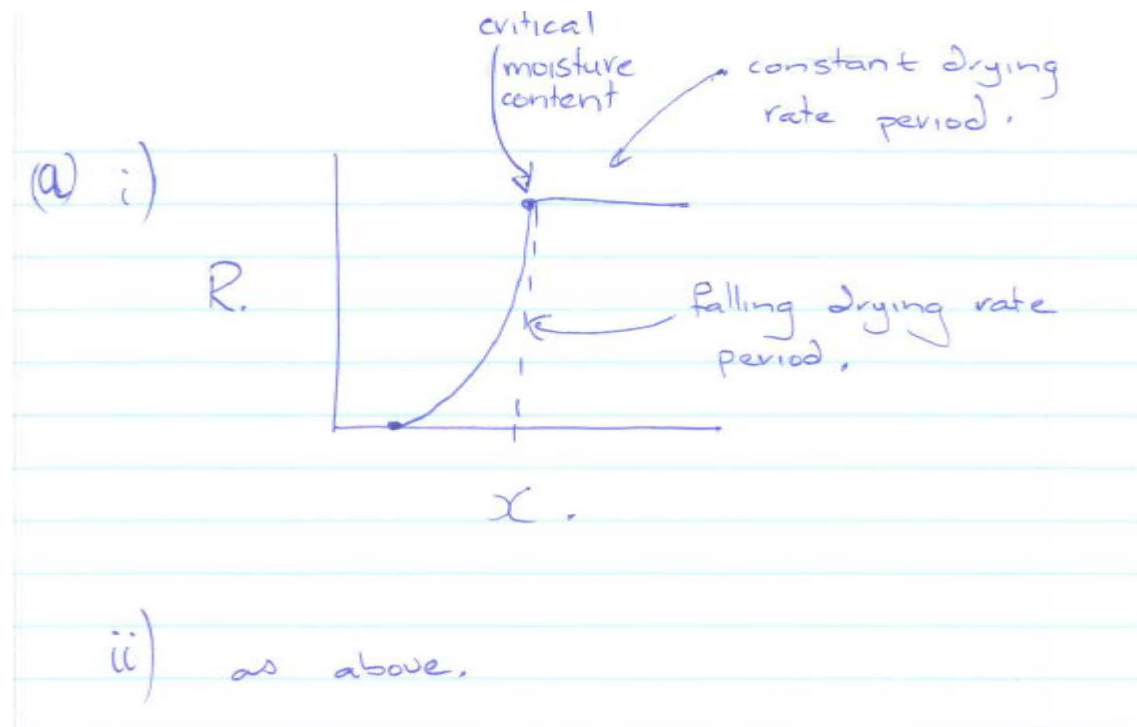 critical
moisture
content
constant drying
rate period.
(a) i)
R.
falling drying rate
period.
x.
ii) as above.